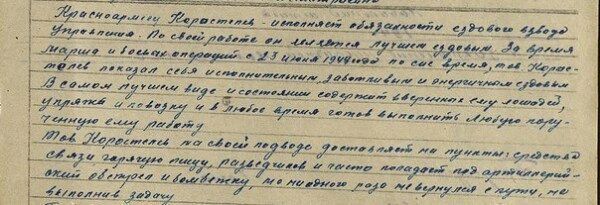 Красноармеец Коростелев - исполняет обязанности ездового взвода
управления. По своей работе он является лучшем ездовым. За время
марша и боевых операций с 23 июня 1944 года по сие время, тов Корос-
телев показал себя исполнительным, заботливым и энергичном ездовым
В самом лучшем виде и состоянии содержит вверенных ему лошадей,
упряжь и повозку и в любое время готов выполнить любую пору-
ченную ему работу
Тов. Коростелев на своей подводе доставляет на пункты: средства
связи горячую пищу, разведчиков и часто попадает под артиллерий-
ский обстрел и бомбежку, но ниодного разо не вернулся с пути, не
выполнив задачу